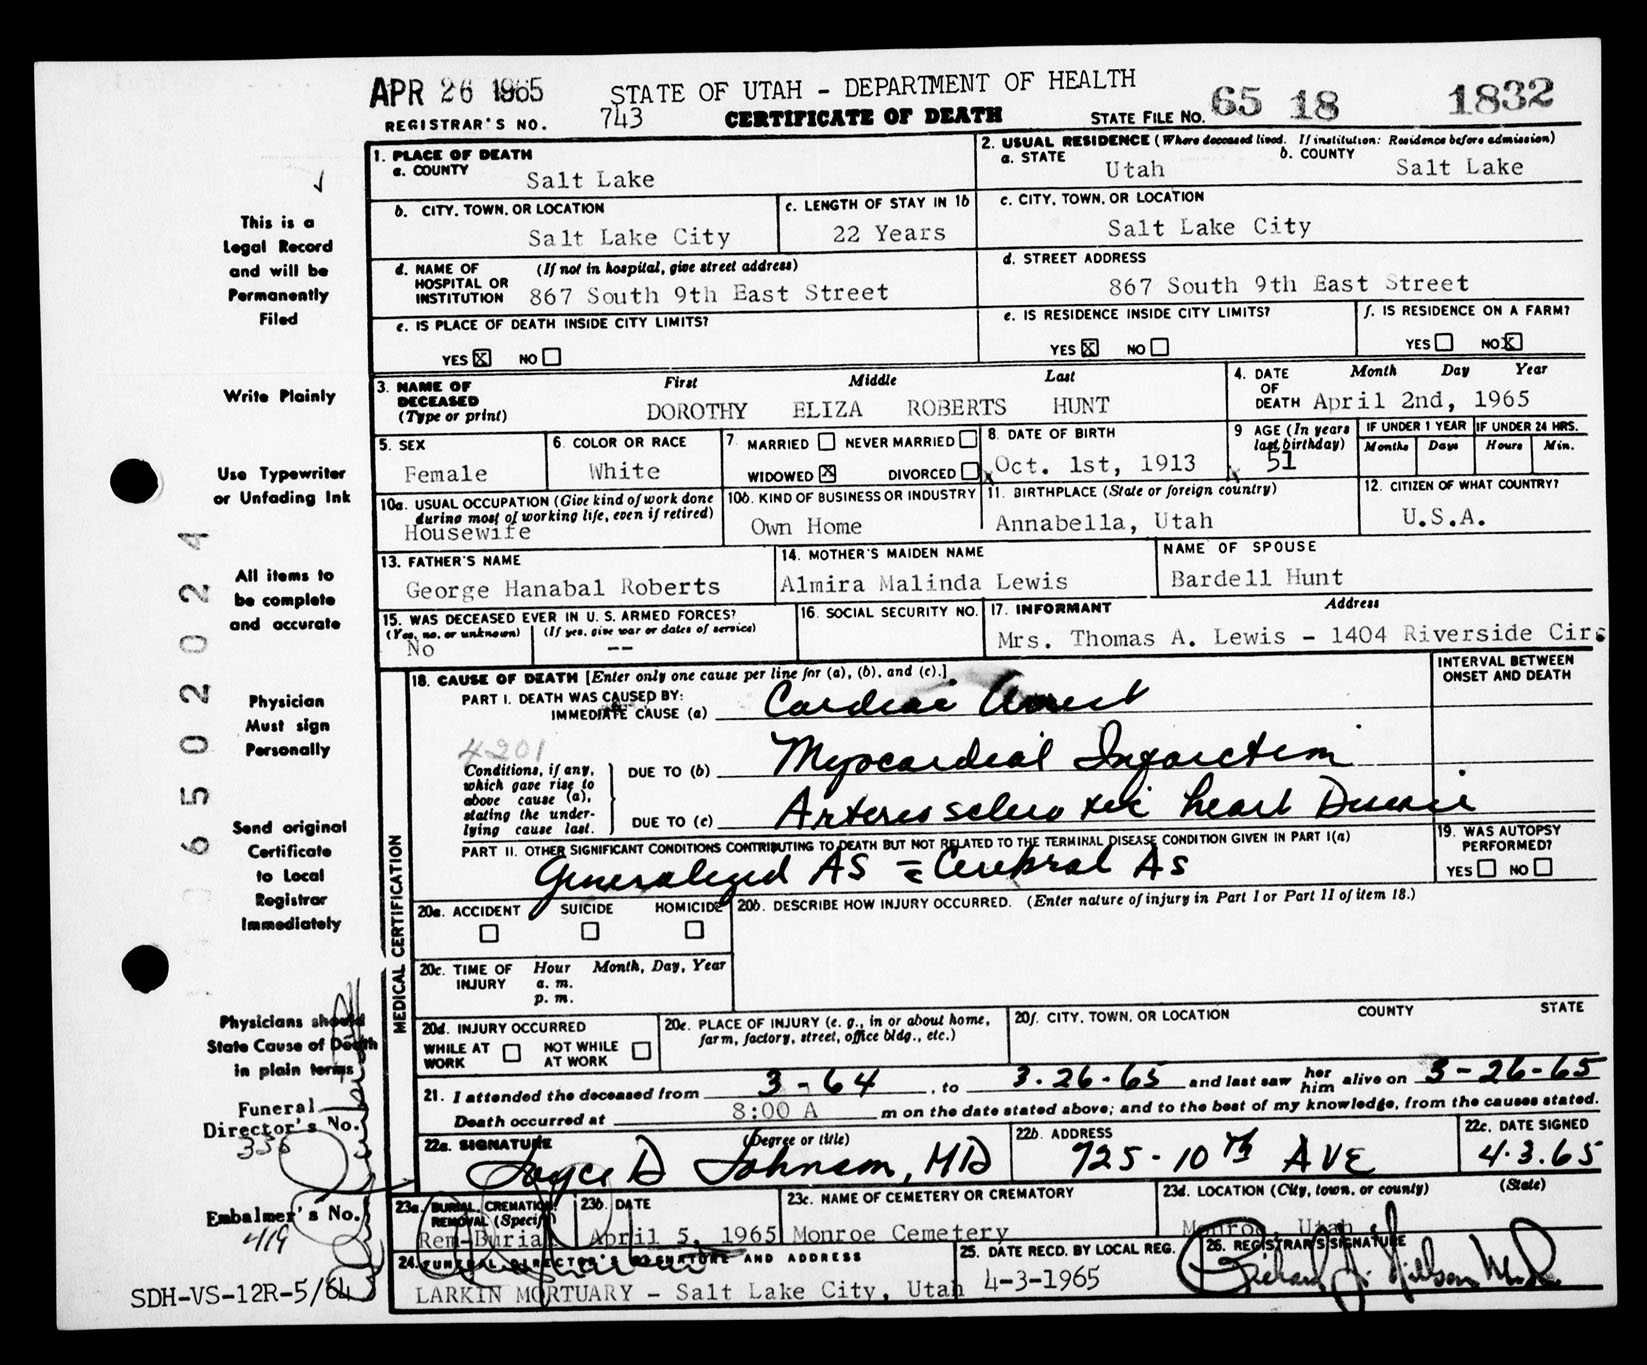 APR 26 1965
STATE OF UTAH - DEPARTMENT OF HEALTH
REGISTRAR'S NO. 743 CERTIFICATE OF DEATH STATE FILE NO. 65 18 1832
This is a
Legal Record
and will be
Permanently
Filed
Write Plainly
Use Typewriter
or Unfading Ink
All items to
be complete
and accurate
Physician
Must sign
Personally
Send original
Certificate
to Local
Registrar
Immediately
Physicians should
State Cause of Death
in plain terms
Funeral
Director's No.
336
Embalmer's No.
419
SDH-VS-12R-5/64
0 6 5 0 2 0 2 4
1. PLACE OF DEATH
a. COUNTY
Salt Lake
2. USUAL RESIDENCE (Where deceased lived. If institution: Residence before admission)
a. STATE Utah b. COUNTY Salt Lake
b. CITY, TOWN, OR LOCATION
Salt Lake City
c. LENGTH OF STAY IN 1b
22 Years
c. CITY, TOWN, OR LOCATION
Salt Lake City
d. NAME OF HOSPITAL OR INSTITUTION (If not in hospital, give street address)
867 South 9th East Street
d. STREET ADDRESS
867 South 9th East Street
e. IS PLACE OF DEATH INSIDE CITY LIMITS?
YES X NO
e. IS RESIDENCE INSIDE CITY LIMITS?
YES X NO
f. IS RESIDENCE ON A FARM?
YES NO X
3. NAME OF DECEASED (Type or print)
First Middle Last
DOROTHY ELIZA ROBERTS HUNT
4. DATE OF DEATH Month Day Year
April 2nd, 1965
5. SEX
Female
6. COLOR OR RACE
White
7. MARRIED NEVER MARRIED
WIDOWED X DIVORCED
8. DATE OF BIRTH
Oct. 1st, 1913
9 AGE (In years last birthday)
51
IF UNDER 1 YEAR
Months Days
IF UNDER 24 HRS.
Hours Min.
10a. USUAL OCCUPATION (Give kind of work done during most of working life, even if retired)
Housewife
10b. KIND OF BUSINESS OR INDUSTRY
Own Home
11. BIRTHPLACE (State or foreign country)
Annabella, Utah
12. CITIZEN OF WHAT COUNTRY?
U.S.A.
13. FATHER'S NAME
George Hanabal Roberts
14. MOTHER'S MAIDEN NAME
Almira Malinda Lewis
NAME OF SPOUSE
Bardell Hunt
15. WAS DECEASED EVER IN U. S. ARMED FORCES?
(Yes, no, or unknown) (If yes, give war or dates of service)
No --
16. SOCIAL SECURITY NO.
17. INFORMANT Address
Mrs. Thomas A. Lewis - 1404 Riverside Circ
MEDICAL CERTIFICATION
18. CAUSE OF DEATH [Enter only one cause per line for (a), (b), and (c).]
INTERVAL BETWEEN ONSET AND DEATH
PART I. DEATH WAS CAUSED BY:
IMMEDIATE CAUSE (a) Cardiac Arrest
4201
Conditions, if any, which gave rise to above cause (a), stating the underlying cause last.
DUE TO (b) Myocardial Infarction
DUE TO (c) Arteriosclerotic heart Disease
PART II. OTHER SIGNIFICANT CONDITIONS CONTRIBUTING TO DEATH BUT NOT RELATED TO THE TERMINAL DISEASE CONDITION GIVEN IN PART I(a)
Generalized AS = Cerebral AS
19. WAS AUTOPSY PERFORMED?
YES NO
20a. ACCIDENT SUICIDE HOMICIDE
20b. DESCRIBE HOW INJURY OCCURRED. (Enter nature of injury in Part I or Part II of item 18.)
20c. TIME OF INJURY Hour Month, Day, Year
a. m.
p. m.
20d. INJURY OCCURRED
WHILE AT WORK NOT WHILE AT WORK
20e. PLACE OF INJURY (e. g., in or about home, farm, factory, street, office bldg., etc.)
20f. CITY, TOWN, OR LOCATION COUNTY STATE
21. I attended the deceased from 3-64, to 3-26-65 and last saw her him alive on 3-26-65
Death occurred at 8:00 A m on the date stated above; and to the best of my knowledge, from the causes stated.
22a. SIGNATURE (Degree or title)
Joyce D Johnson, MD
22b. ADDRESS
725-10th AVE
22c. DATE SIGNED
4.3.65
23a. BURIAL, CREMATION, REMOVAL (Specify)
Rem-Burial
23b. DATE
April 5, 1965
23c. NAME OF CEMETERY OR CREMATORY
Monroe Cemetery
23d. LOCATION (City, town, or county) (State)
Monroe, Utah
24. FUNERAL DIRECTOR'S SIGNATURE AND ADDRESS
LARKIN MORTUARY - Salt Lake City, Utah
25. DATE RECD. BY LOCAL REG.
4-3-1965
26. REGISTRAR'S SIGNATURE